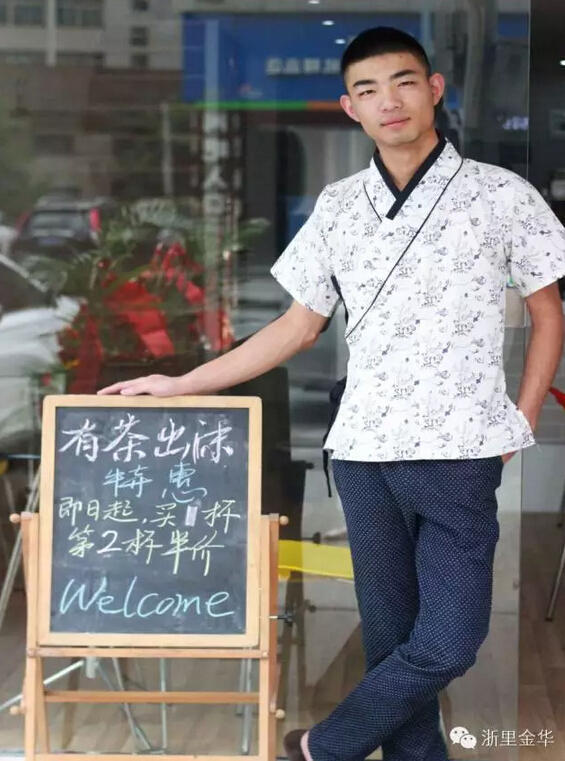 有茶出沫
特惠
即日起,买1杯
第2杯半价
Welcome
浙里金华